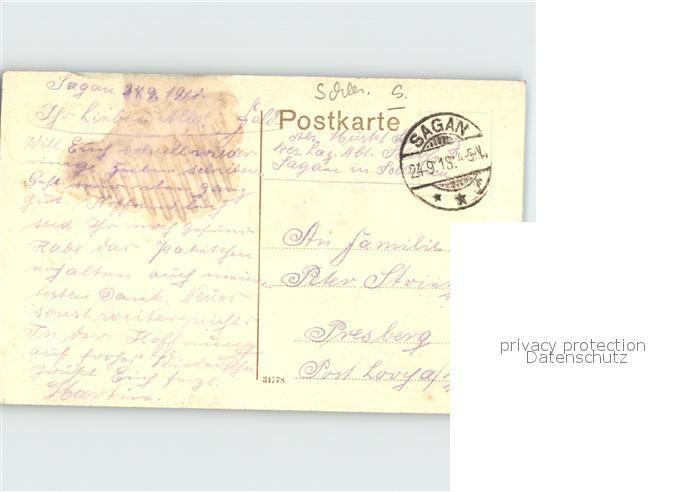 Sagan 24.9.1918.
Ihr Lieben Alle!
Will Euch schnell wieder
einige Zeilen schreiben
Geht mir eben ganz
gut. Hoffentlich
seid Ihr noch Gesund
Habe das Paketchen
erhalten auch meinen
besten Dank. Neues
sonst weiter nichts
In der Hoffnung
auf frohes Wiedersehen
grüßt Euch herzl.
Martin.
Schles. S.
Feld
Postkarte
Abs.
Res. Laz. Abt.
Sagan in
SAGAN
24.9.18. 4-5N.
An Familie
Peter
Presberg
Post Lorch a/
31778
privacy protection
Datenschutz